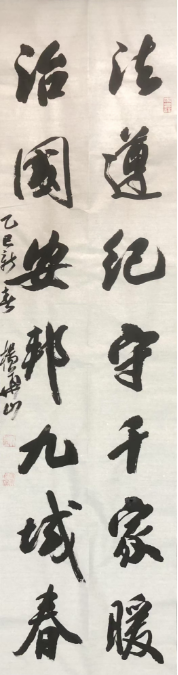 法遵纪守千家暖
治國安邦九域春
乙巳新春